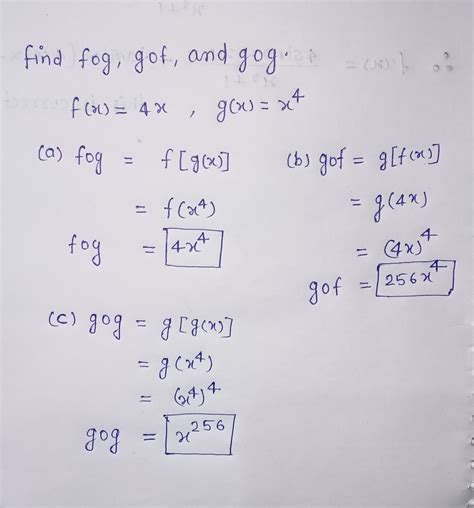 find fog, gof, and gog.
f(x) = 4x , g(x) = x⁴
(a) fog = f[g(x)]
= f(x⁴)
fog = 4x⁴
(b) gof = g[f(x)]
= g(4x)
= (4x)⁴
gof = 256x⁴
(c) gog = g[g(x)]
= g(x⁴)
= (x⁴)⁴
gog = x²⁵⁶